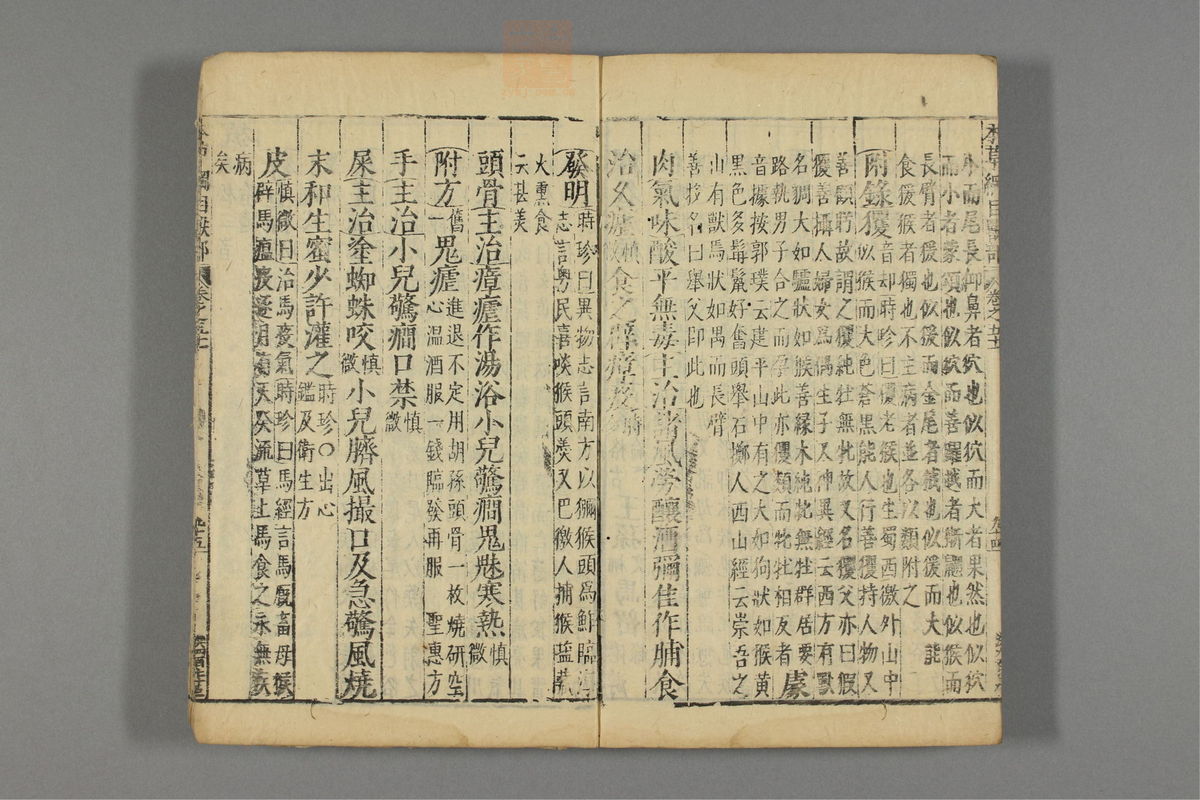 小而尾長仰鼻者狖也似狖而大者果然也似狖
而小者蒙頌也似狖而善躍越者獑䁠也似猴而
長臂者猨也似猨而金尾者狨也似猨而大能
食猨猴者獨也不主病者並各以類附之
附錄玃音却時珍曰玃老猴也生蜀西徼外山中
似猴而大色蒼黑能人行善攫持人物又
善顧盻故謂之玃純牡無牝故又名玃父亦曰猳
玃善攝人婦女為偶生子又神異經云西方有獸
名㺀大如驢狀如猴善緣木純牝無牡群居要
路執男子合之而孕此亦玃類而牝牡相反者 豦
音據按郭璞云建平山中有之大如狗狀如猴黃
黑色多髯鬣好奮頭舉石擲人西山經云崇吾之
山有獸焉狀如禺而長臂
善投名曰舉父即此也
肉氣味酸平無毒主治諸風勞釀酒彌佳作脯食
治久瘧慎微食之辟瘴疫
發明時珍曰異物志言南方以獼猴頭為鮓臨海
志言粵民喜啖猴頭羹又巴徼人捕猴鹽藏
火熏食
云甚美
頭骨主治瘴瘧作湯浴小兒驚癇鬼魅寒熱慎微
附方舊一鬼瘧進退不定用胡孫頭骨一枚燒研空
心溫酒服一錢臨發再服 聖惠方
手主治小兒驚癇口禁慎微
屎主治塗蜘蛛咬慎微小兒臍風撮口及急驚風燒
末和生蜜少許灌之時珍○出心
鑑及衛生方
皮慎微曰治馬疫氣時珍曰馬經言馬厩畜母猴
辟馬瘟疫逐月有天癸流草上馬食之永無疾
病
矣